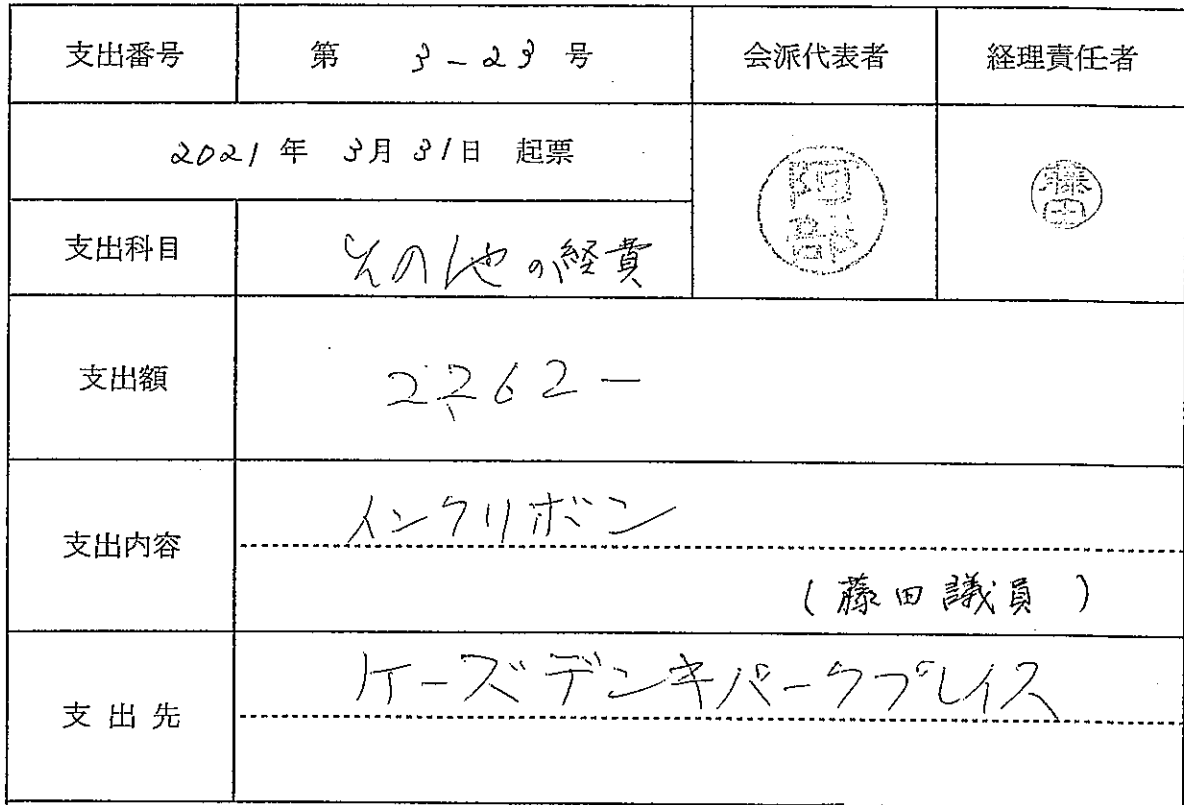 支出番号 第 3-23 号 会派代表者 経理責任者
2021年 3月31日 起票
阿部
藤田
支出科目 その他の経費
支出額 2,262-
支出内容 インクリボン
(藤田議員)
支出先 ケーズデンキパークプレイス